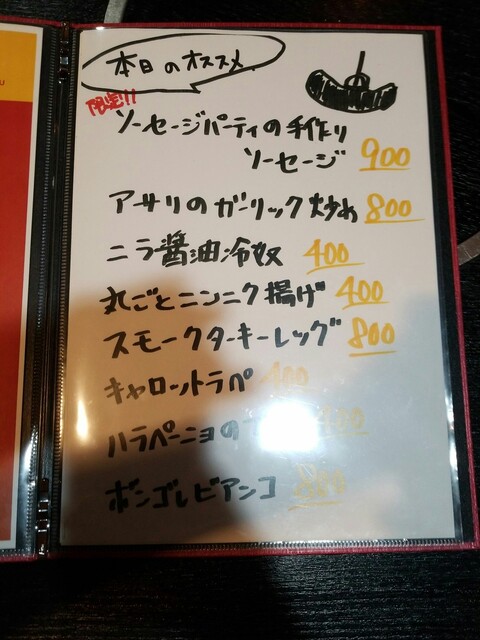 本日のオススメ
限定!!
ソーセージパーティの手作り
ソーセージ 900
アサリのガーリック炒め 800
ニラ醤油冷奴 400
丸ごとニンニク揚げ 400
スモークターキーレッグ 800
キャロットラペ 400
ハラペーニョの 400
ボンゴレビアンコ 800